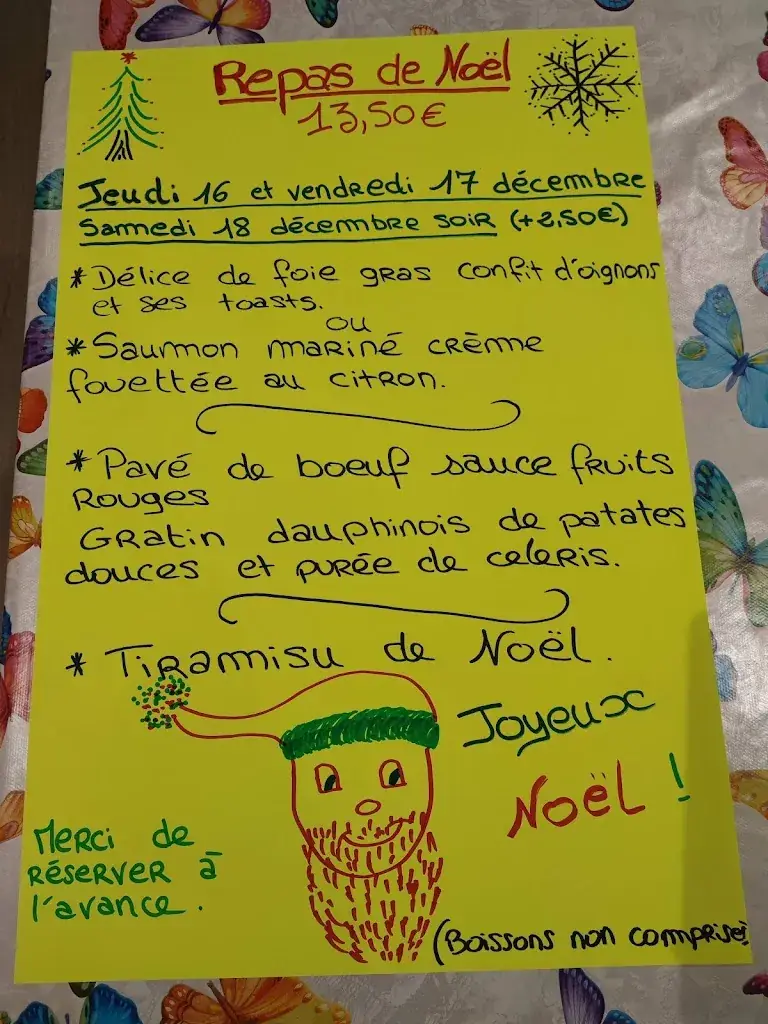 Repas de Noël
13,50€
Jeudi 16 et vendredi 17 décembre
Samedi 18 décembre soir (+2,50€)
* Délice de foie gras confit d'oignons
et ses toasts.
ou
* Saumon mariné crème
fouettée au citron.
* Pavé de boeuf sauce fruits
Rouges
Gratin dauphinois de patates
douces et purée de celeris.
* Tiramisu de Noël.
Joyeux
Noël !
Merci de
réserver à
l'avance.
(Boissons non comprises